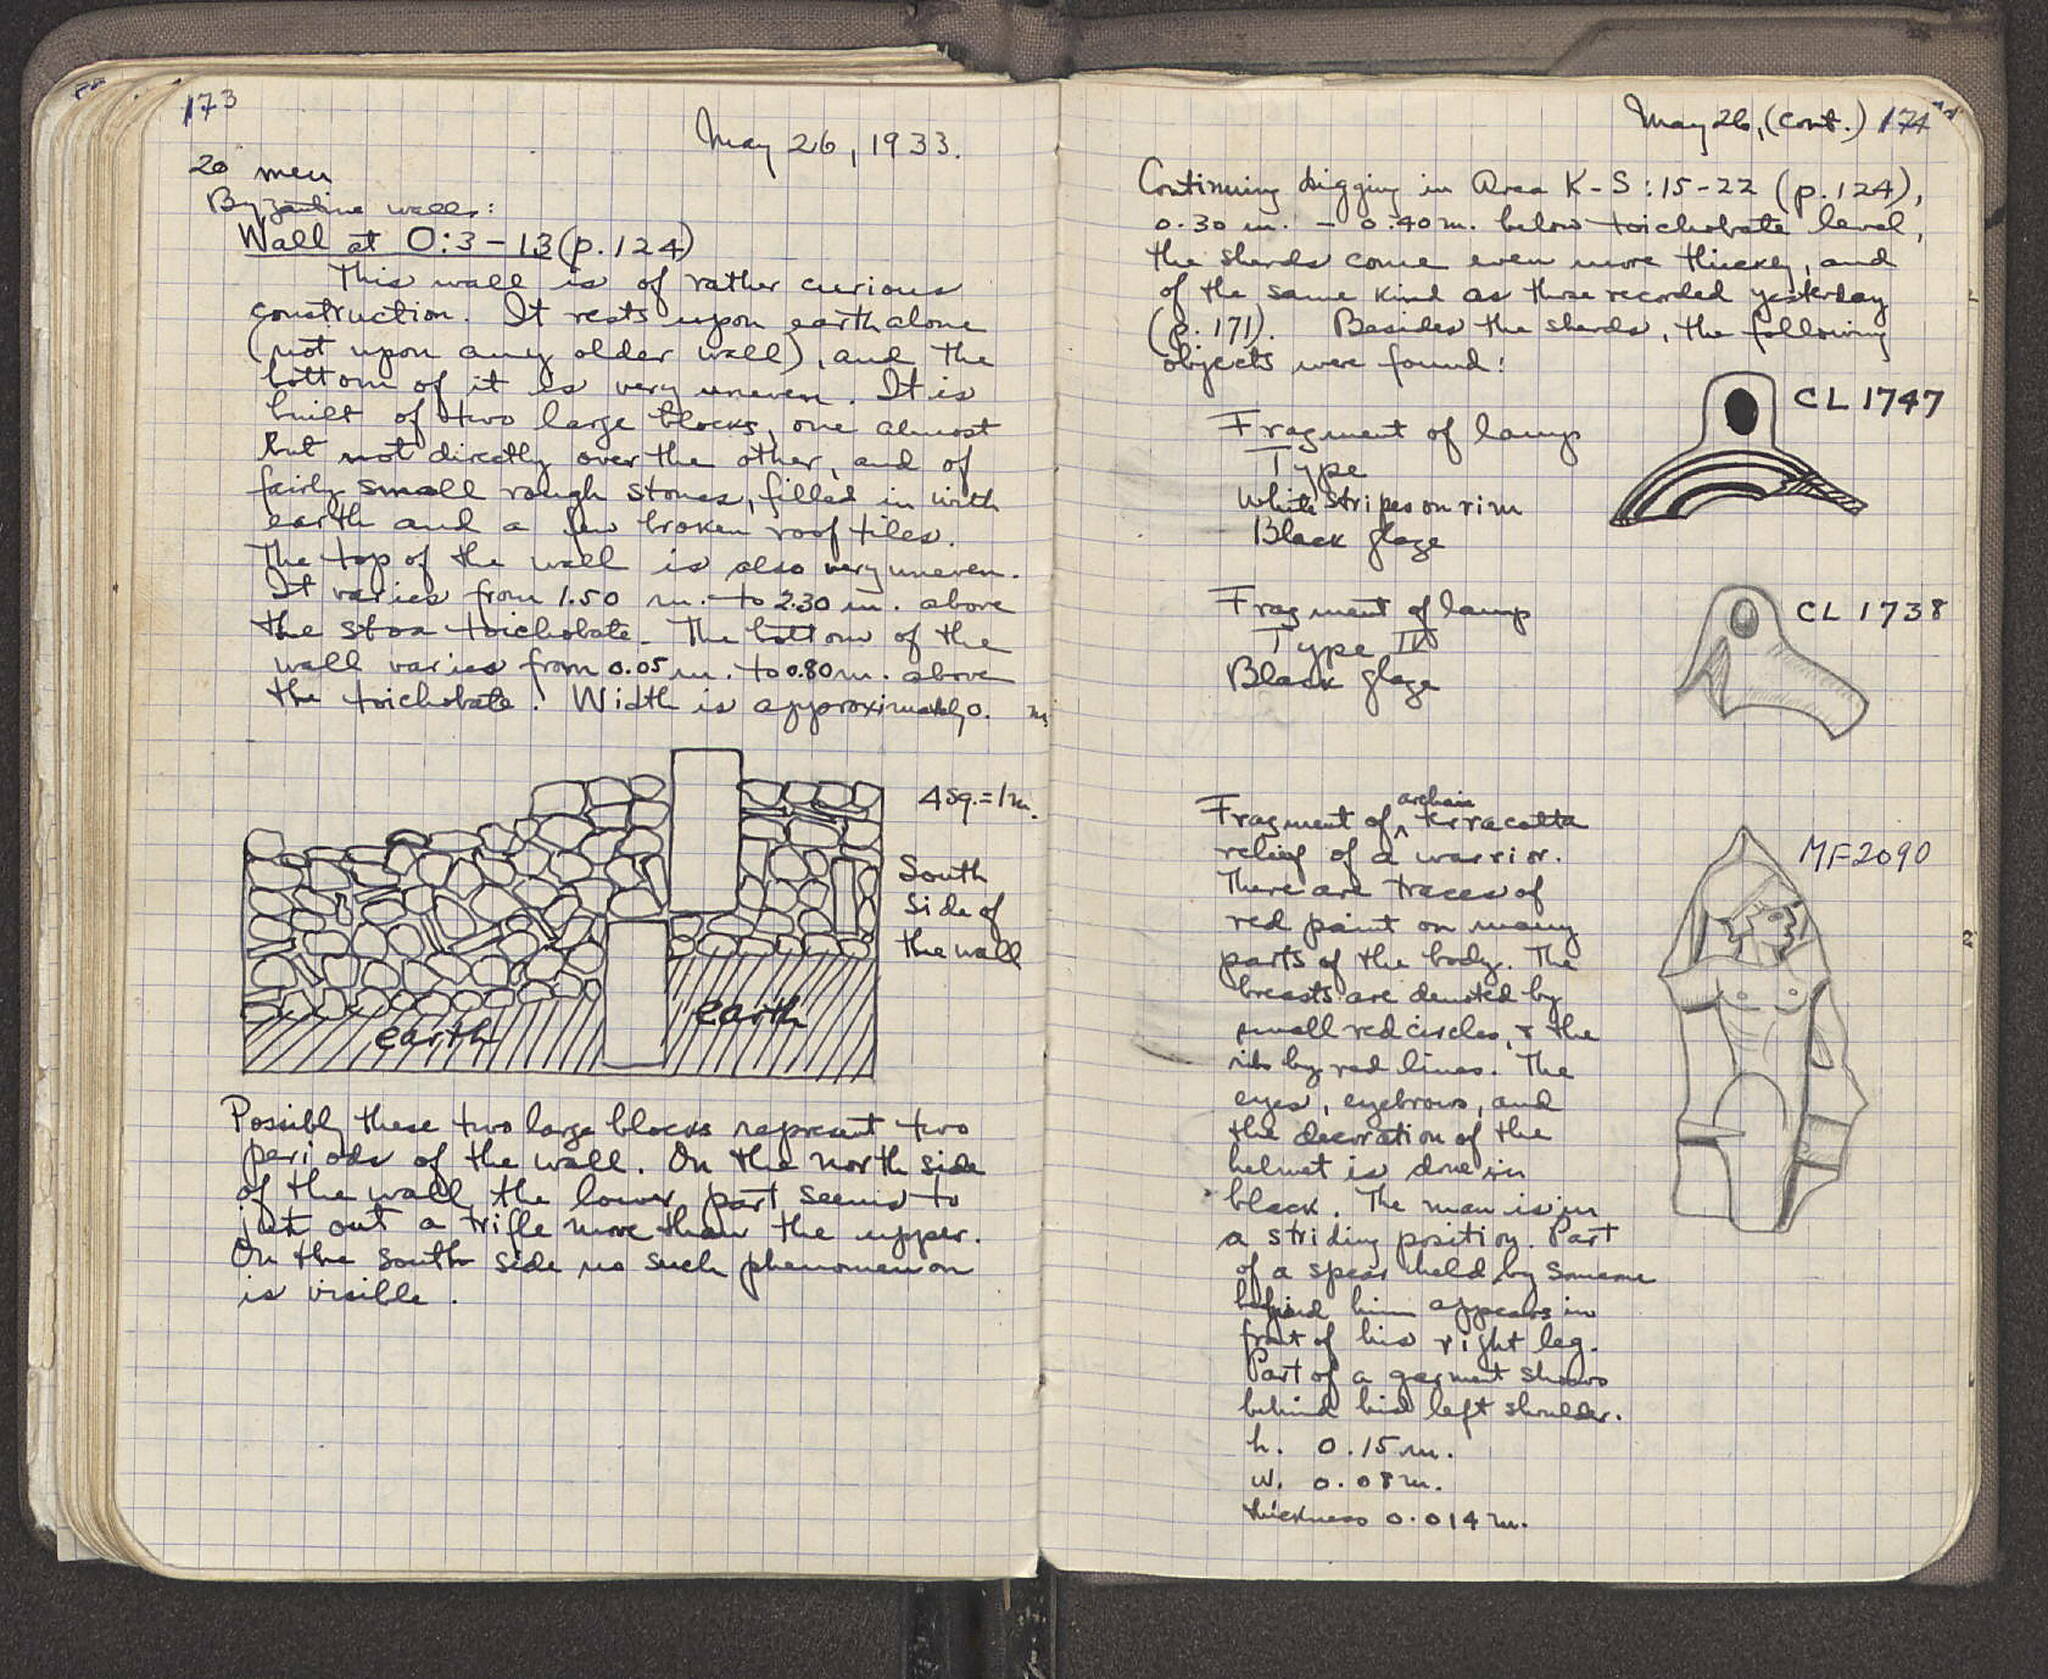 173
May 26, 1933.
20 men
Byzantine walls:
Wall at O:3-13 (p.124)
This wall is of rather curious
construction. It rests upon earth alone
(not upon any older wall), and the
bottom of it is very uneven. It is
built of two large blocks, one almost
but not directly over the other, and of
fairly small rough stones, filled in with
earth and a few broken roof tiles.
The top of the wall is also very uneven.
It varies from 1.50 m. to 2.30 m. above
the stoa toichobate. The bottom of the
wall varies from 0.05 m. to 0.80 m. above
the toichobate. Width is approximately 0. m.
4 sq. = 1 m.
South
side of
the wall
earth
earth
Possibly these two large blocks represent two
periods of the wall. On the north side
of the wall, the lower part seems to
jut out a trifle more than the upper.
On the south side no such phenomenon
is visible.
May 26, (cont.) 174
Continuing digging in Area K-S:15-22 (p.124),
0.30 m. - 0.40 m. below toichobate level,
the sherds come even more thickly, and
of the same kind as those recorded yesterday
(p. 171). Besides the sherds, the following
objects were found:
CL 1747
Fragment of lamp
Type
White stripes on rim
Black glaze
Fragment of lamp
CL 1738
Type IV
Black glaze
Fragment of archaic terracotta
MF2090
relief of a warrior.
There are traces of
red paint on many
parts of the body. The
breasts are denoted by
small red circles, & the
ribs by red lines. The
eyes, eyebrows, and
the decoration of the
helmet is done in
black. The man is in
a striding position. Part
of a spear held by someone
behind him appears in
front of his right leg.
Part of a garment shows
behind his left shoulder.
h. 0.15 m.
w. 0.08 m.
thickness 0.014 m.